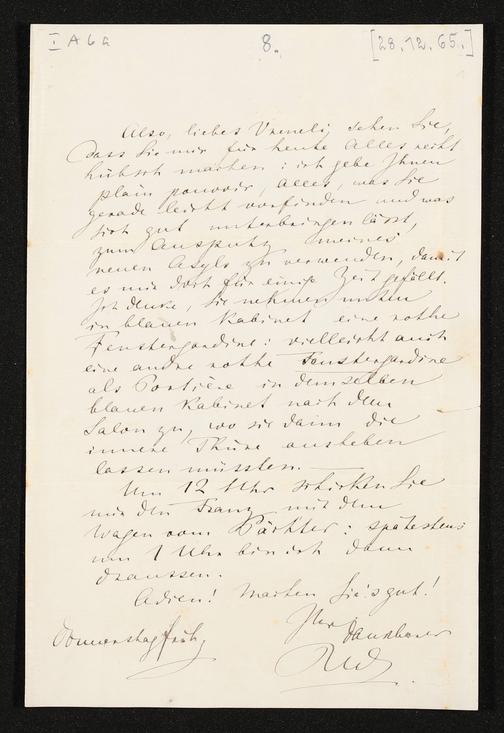 I A 6 a 8. [28.12.65.]
Also, liebes Vreneli, sehen Sie,
dass Sie mir für heute Alles recht
hübsch machen: ich gebe Ihnen
plain pouvoir, alles, was Sie
gerade leicht vorfinden und was
sich gut unterbringen lässt,
zum Ausputz meines
neuen Asyls zu verwenden, damit
es mir dort für einige Zeit gefällt.
Ich denke, Sie nehmen unten
in blauen Kabinet eine rothe
Fenstergardine: vielleicht auch
eine andre rothe Fenstergardine
als Portière in demselben
blauen Kabinet nach dem
Salon zu, wo sie dann die
innere Thüre ausheben
lassen müssten. —
Um 12 Uhr schicken Sie
mir den Franz mit dem
Wagen vom Pächter: spätestens
um 1 Uhr bin ich dann
draussen.
Adieu! Machen Sie's gut!
Ihr dankbarer
Donnerstag früh